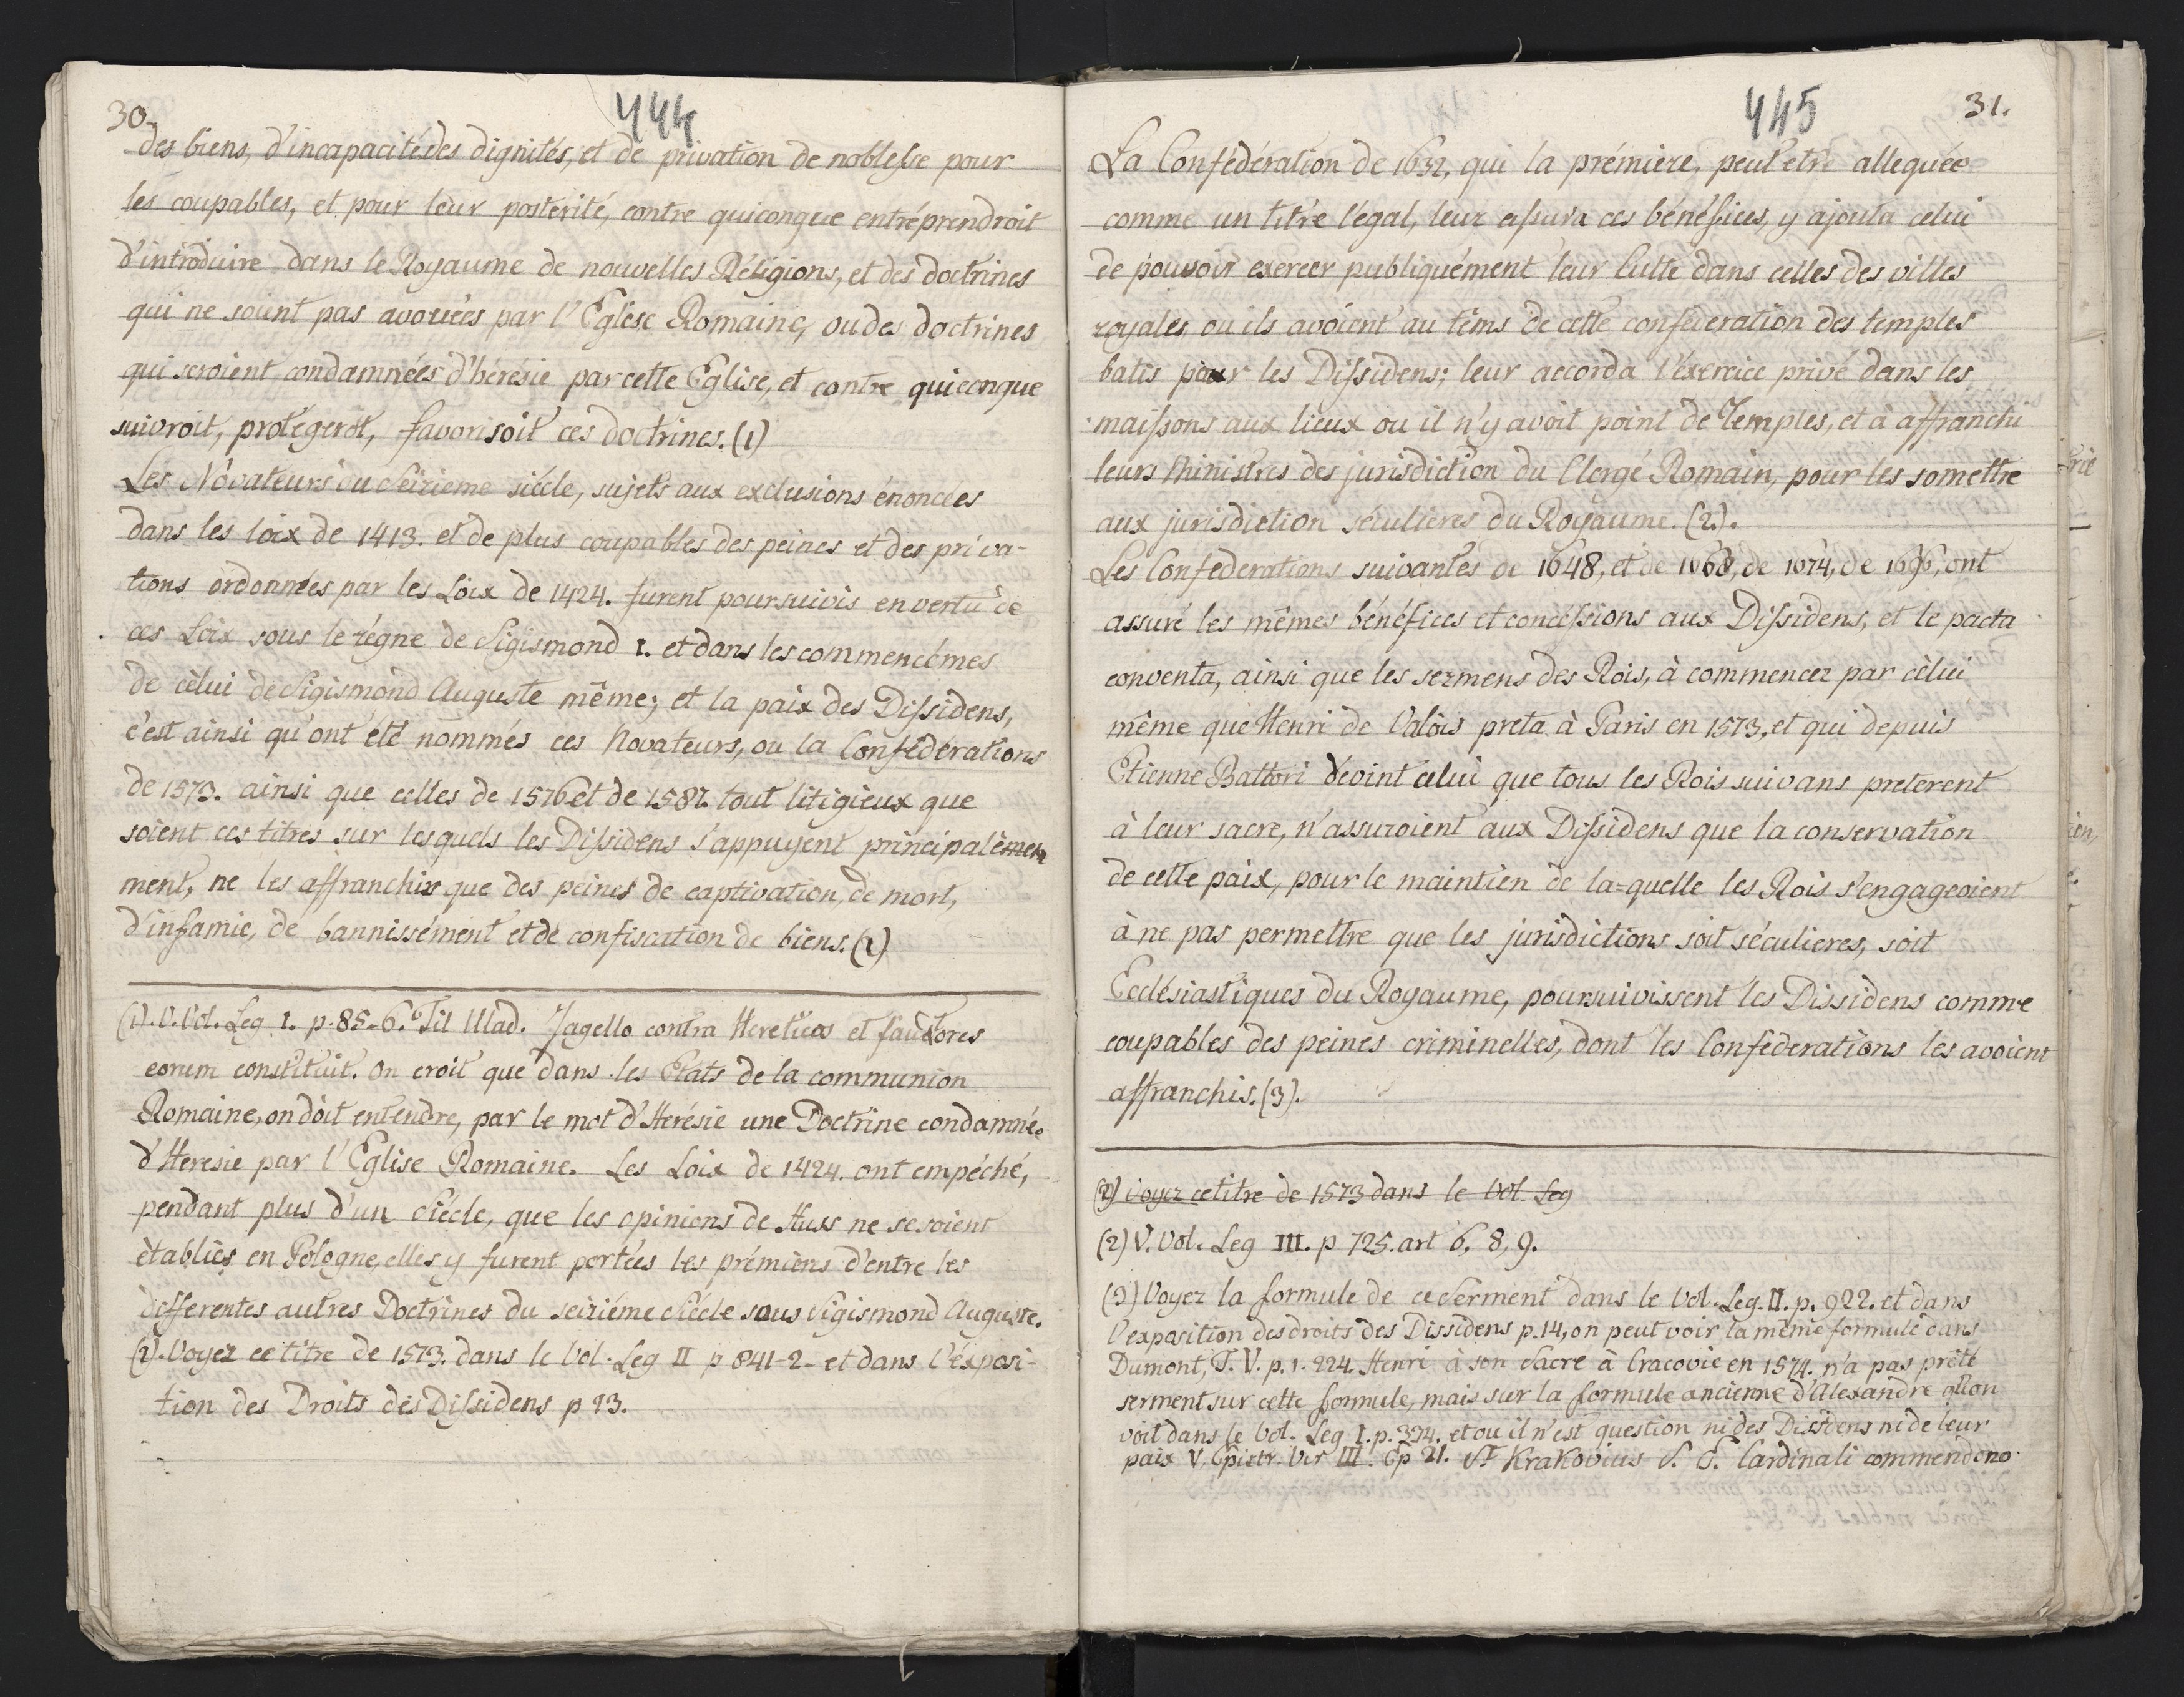 30.
444
des biens, d'incapacité des dignités, et de privation de noblesse pour
les coupables, et pour leur posterité, contre quiconque entréprendroit
d'introduire dans le Royaume de nouvelles Réligions, et des doctrines
qui ne soient pas avouées par l'Eglise Romaine, ou des doctrines
qui seroient condamnées d'hérésie par cette Eglise, et contre quiconque
suivroit, protégerôt, favorisoit ces doctrines. (1)
Les Novateurs du Seizieme siécle, sujets aux exclusions énoncées
dans les loix de 1413. et de plus coupables des peines et des priva-
tions ordonnées par les Loix de 1424. furent poursuivis en vertu de
ces Loix sous le régne de Sigismond I. et dans les commencémes
de célui de Sigismond Auguste même; et la paix des Dissidens,
c'est ainsi qu'ont été nommés ces Novateurs, ou la Confédérations
de 1573. ainsi que celles de 1576 et de 1587. tout litigieux que
soient ces titres sur lesquels les Dissidens s'appuyent principalèmen
ment, ne les affranchix que des peines de captivation, de mort,
d'infamie, de bannissément et de confiscation de biens. (2)
(1). V. Vol. Leg. I. p. 85-6. Tit Ulad. Jagello contra Hereticos et fauctores
eorum constituit. On croit que dans les Etats de la communion
Romaine, on doit entendre, par le mot d'Herésie une Doctrine condamnée
d'Heresie par l'Eglise Romaine. Les Loix de 1424. ont empéché,
pendant plus d'un siécle, que les opinions de Huss ne se soient
établies en Pologne, elles y furent portées les prémiéres d'entre les
differentes autres Doctrines du seiziéme siécle sous Sigismond Auguste.
(2). Voyez ce titre de 1573. dans le Vol. Leg II p 841-2- et dans l'éxposi-
tion des Droits des Dissidens p 93.
445
31.
La Confédération de 1632, qui la prémiere, peut etre alleguée
comme un titre légal, leur assura ces bénéfices, y ajouta celui
de pouvoir exercer publiquément leur Culte dans celles des villes
royales ou ils avoient au téms de cette conféderation des temples
batis pour les Dissidens; leur accorda l'éxercice privé dans les
maissons aux lieux ou il n'y avoit point de Temples, et à affranchi
leurs Ministres des jurisdiction du Clergé Romain, pour les somettre
aux jurisdiction séculieres du Royaume. (2.).
Les Confederations suivantes de 1648, et de 1668, de 1674, de 1696, ont
assuré les mêmes bénéfices et concéssions aux Dissidens, et le pacta
conventa, ainsi que les sermens des Rois, à commencer par célui
même que Henri de Valois preta à Paris en 1573, et qui depuis
Etienne Battori devint celui que tous les Rois suivans preterent
à leur sacre, n'assuroient aux Dissidens que la conservation
de cette paix, pour le maintien de la=quelle les Rois s'engageoient
à ne pas permettre que les jurisdictions soit séculieres, soit
Ecclésiastiques du Royaume, poursuivissent les Dissidens comme
coupables des peines criminelles, dont les Confederations les avoient
affranchis. (3).
(2) Voyez ce titre de 1573 dans le Vol. Leg
(2) V. Vol. Leg III. p 725. art 6, 8, 9.
(3) Voyez la formule de ce Serment dans le Vol. Leg. II. p. 922. et dans
l'exposition des droits des Dissidens p. 14, on peut voir la même formule dans
Dumont, T. V. p. 1. 224. Henri à son Sacre à Cracovie en 1574. n'a pas prêté
serment sur cette formule, mais sur la formule ancienne d'Alexandre qu'on
voit dans le Vol. Leg I. p. 394. et ou il n'est question ni des Dissidens ni de leur
paix V. Epistr. Vir III. Ep 21. St Krakovius S. P. Cardinali commendono